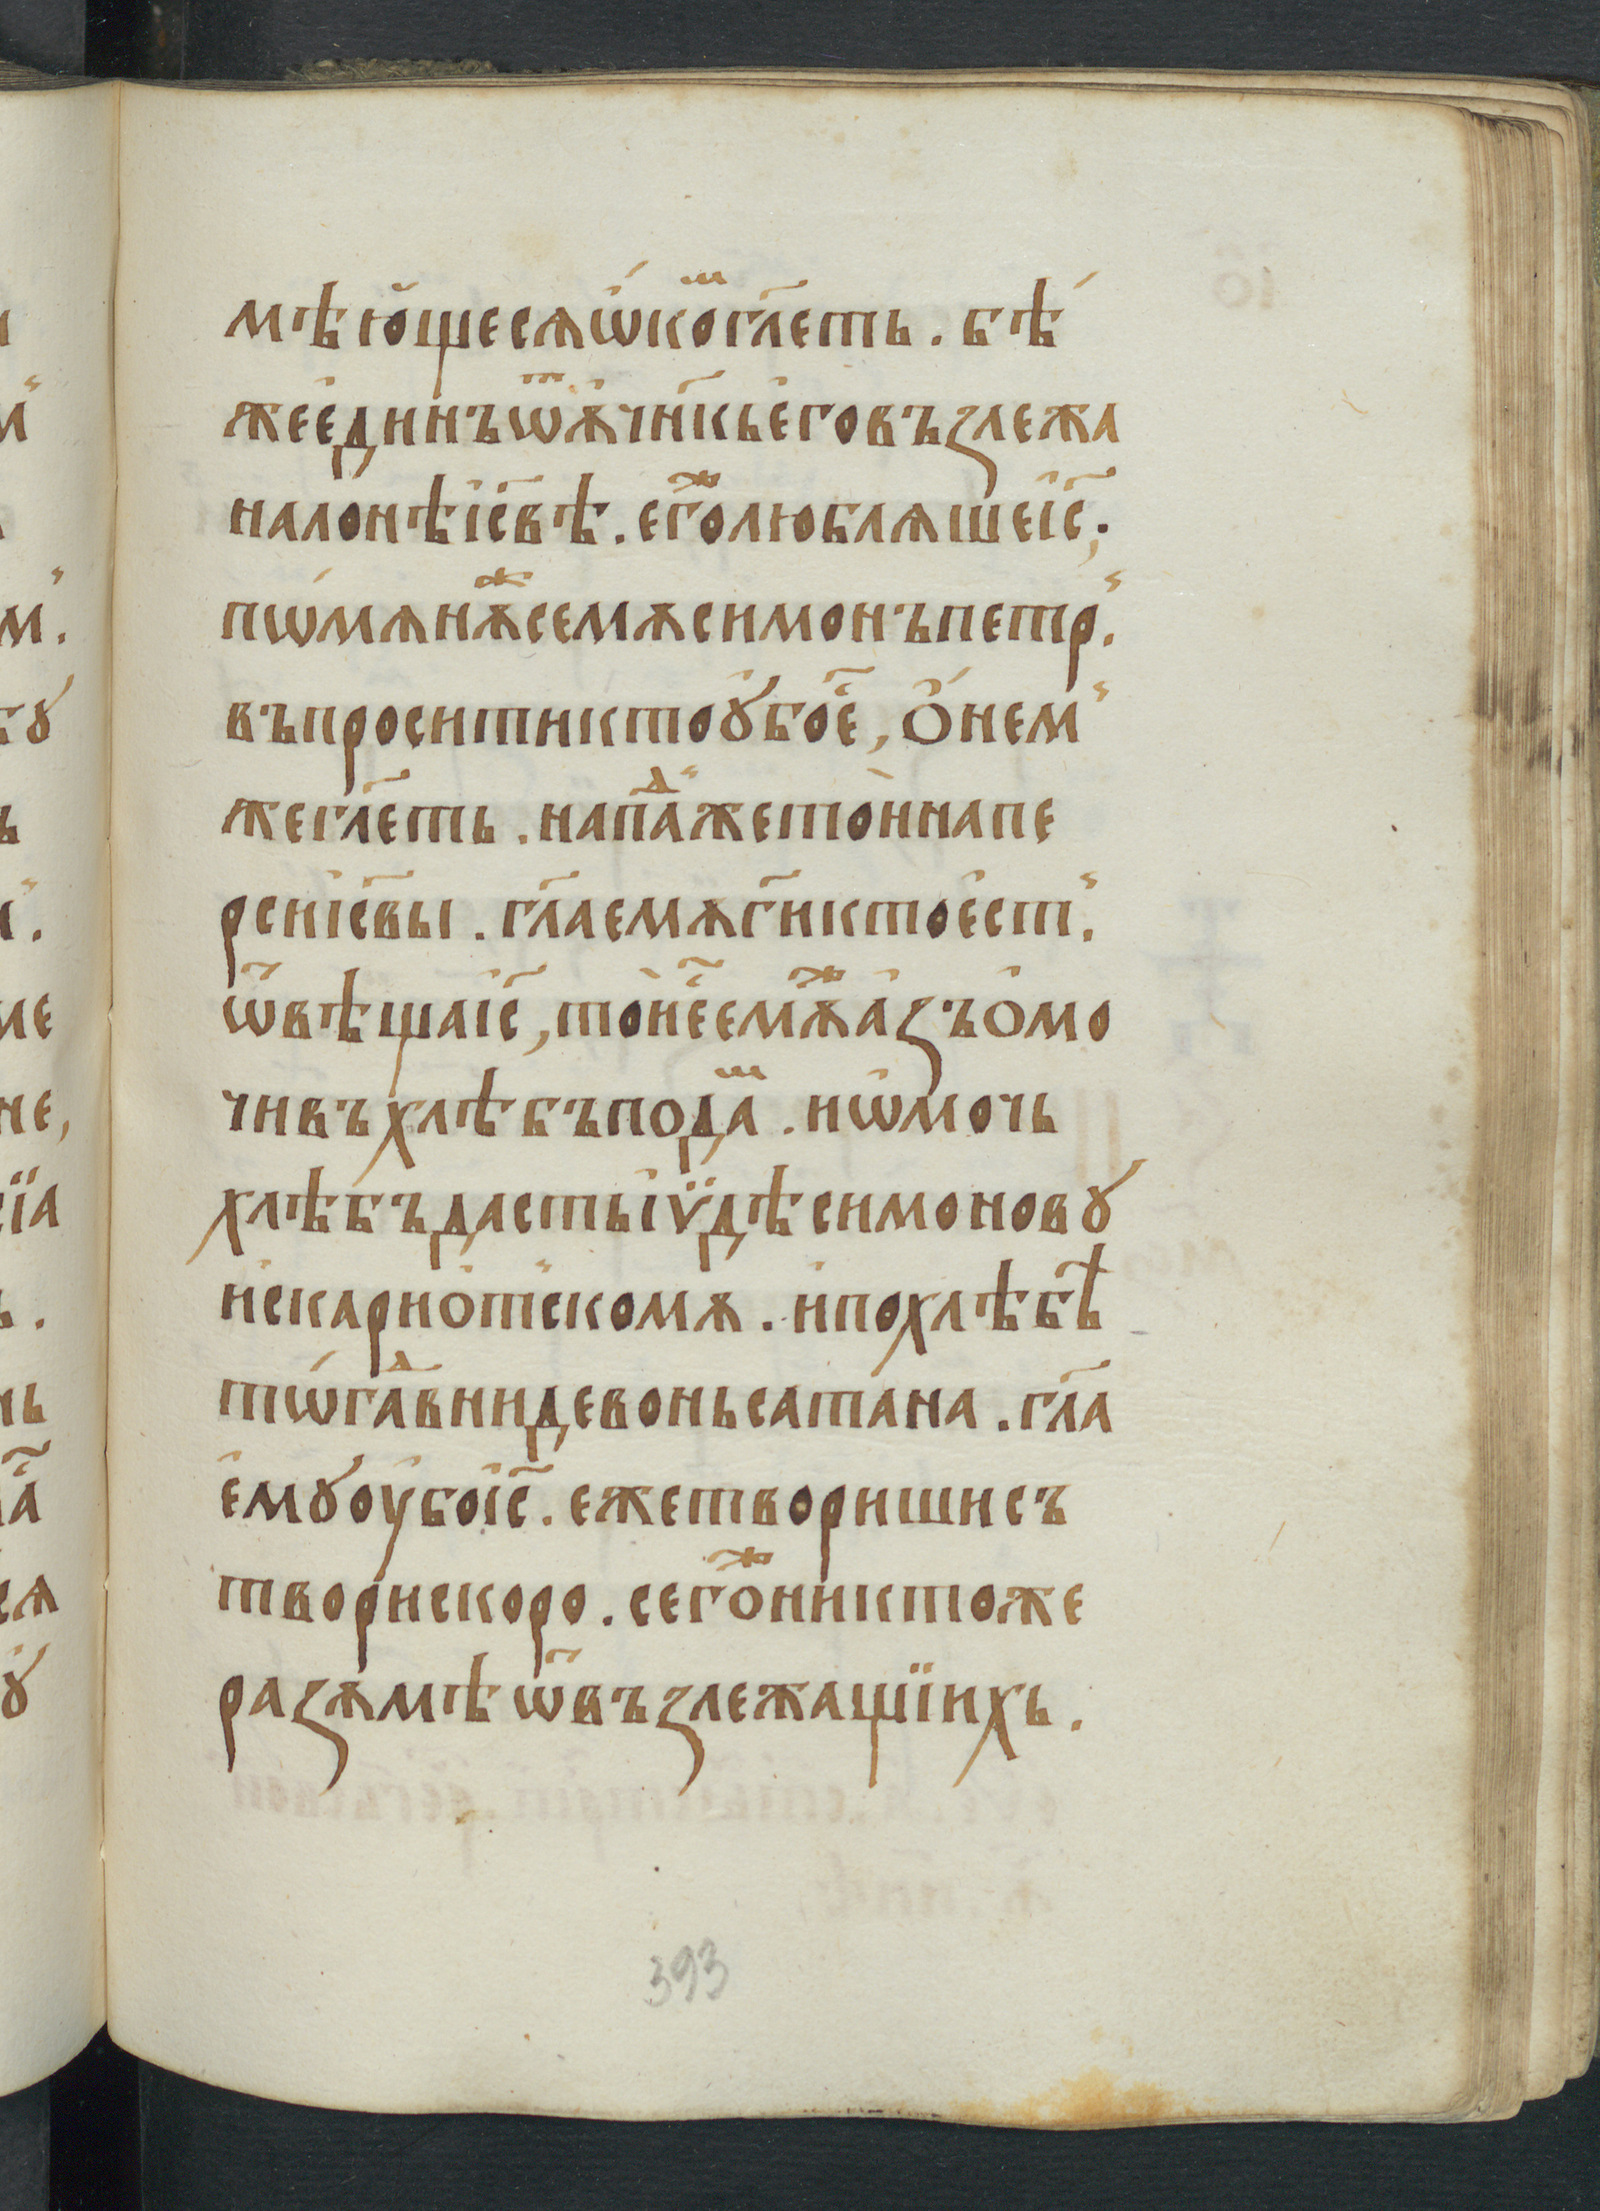 мѣю̑щесѧѡ̑ко҄ⷲгл҃еть . бѣ́
жее҆динъѿѫчн҃кье҆говъꙁлежа
налонѣі҆с҃вѣ . е҆гѡⷤлюблѧшеі҆с҃;
пѡ́мѧнѫⷤсемѫсимонъпетр̾.
въпроситиктоꙋ҆бое҃, О́нем̾
жегл҃еть . напаⷣ̾жето̀ннапе
рсиі҆с҃вы . гл҃аемѫг҃иктое҆ст̾.
ѿвѣщаі҆с҃, то̀не҃емѫⷤа҆ꙁъо҆мо
чивъхлѣбъподаⷲ . иѡ҆мочь
хлѣбъдастьі҆ѵ̈дѣсимоновꙋ
и҆скарио҆т̾скомѫ . и҆похлѣбѣ҃
тѡ́гаⷣвнидевоньсатана . гл҃а
е҆мꙋоу҆боі҆с҃ . ежетворишисъ
творискоро . сегоⷤниктоже
раꙁѫмѣѿвъꙁлежащїихь .
393